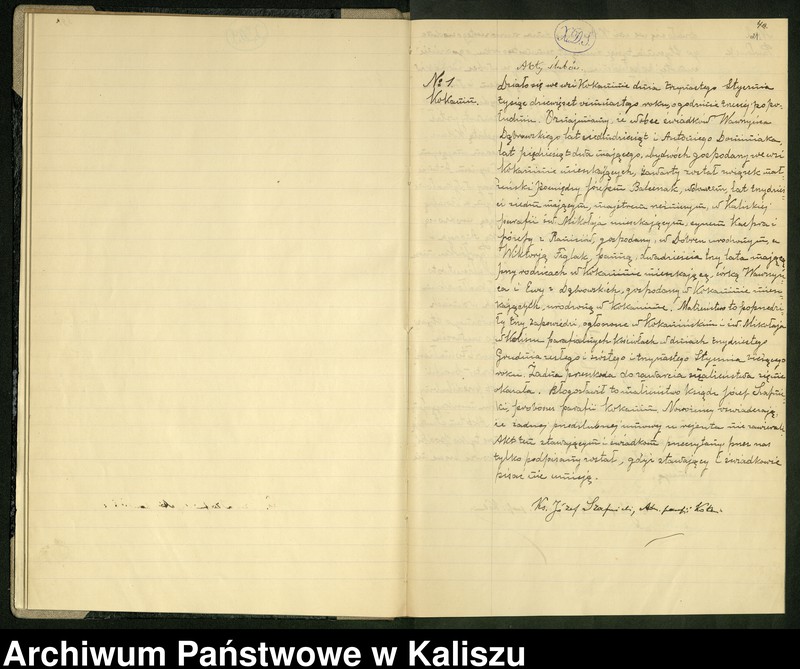 49.
X.D.S.
Akty ślubów.
№ 1.
Kokanin.
Działo się we wsi Kokaninie dnia trzynastego Stycznia
tysiąc dziewięćset ósmnastego roku, o godzinie trzeciej po po-
łudniu. Oznajmiamy, że wobec świadków Wawrzyńca
Dąbrowskiego lat siedmdziesiąt i Antoniego Dominiaka,
lat pięćdziesiąt dwa mającego, obydwóch gospodarzy we wsi
Kokaninie mieszkających, zawarty został związek mał-
żeński pomiędzy Józefem Balcerzak, wdowcem, lat trzydzieś-
ci siedm mającym, majstrem rzeźniczym, w Kaliskiej
parafii św. Mikołaja mieszkającym, synem Kacpra i
Józefy z gospodarzy, w Dobrcu urodzonym, a
Wiktorją panną, dwadzieścia trzy lata mającą
przy rodzicach w Kokaninie mieszkającą, córką Wawrzyń-
ca i Ewy z Dąbrowskich, gospodarzy w Kokaninie miesz-
kających, urodzoną w Kokaninie. Małżeństwo to poprzedzi-
ły trzy zapowiedzi, ogłoszone w Kokanińskim i św. Mikołaja
w Kaliszu parafialnych kościołach w dniach trzydziestego
Grudnia zeszłego i szóstego i trzynastego Stycznia bieżącego
roku. Żadna przeszkoda do zawarcia się małżeństwa nie
okazała. Błogosławił to małżeństwo ksiądz Józef Szafnic-
ki, proboszcz parafii Kokanin. Nowożeńcy oświadczają,
że żadnej przedślubnej umowy u rejenta nie zawierali.
Akt ten stawającym i świadkom przeczytany przez nas
tylko podpisany został, gdyż stawający i świadkowie
pisać nie umieją.
Ks. Józef Szafnicki, Adm. parafji Kokan.
Archiwum Państwowe w Kaliszu